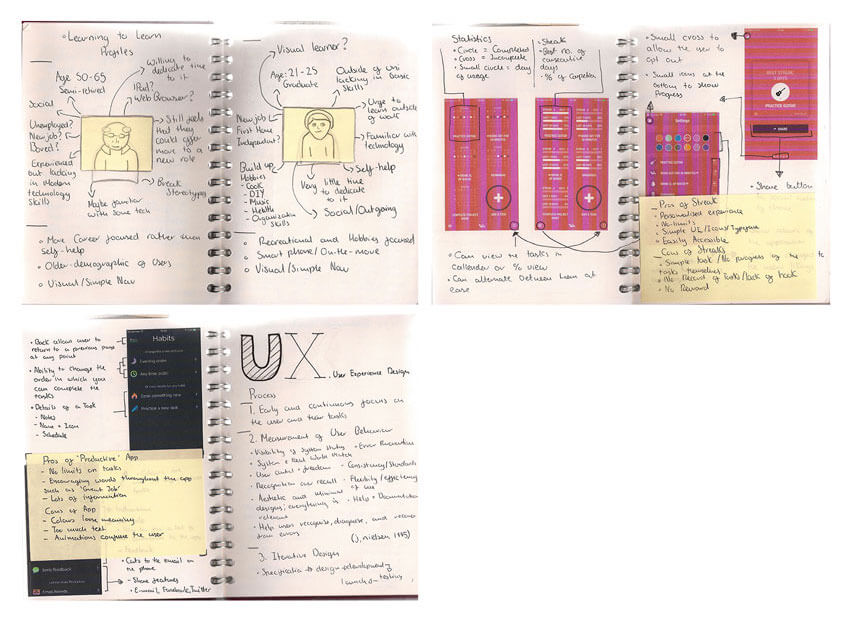 •Learning to Learn
Profiles
Willing to
dedicate time
to it
Age 50-65
Semi-retired
IPad?
Web Browser?
Social
Unemployed?
New job?
Bored?
Still feels
that they
could offer
move to a
new role
Experienced
but lacking
in Modern
technology
Skills
Maybe familiar
with some tech
Break
Stereotypes
• More Career focused rather than
self-help
• Older demographic of Users
• Visual/Simple Nav
Visual learner?
Age: 21-25
Graduate
Outside of uni
lacking in basic
Skills
New job
First Home
Independent?
Urge to
learn outside
of work
Familiar with
technology
Build up
Hobbies
- Cook
- DIY
- Music
- Health
- Organisation
Skills
Self-help
Very little time
to dedicate
to it
Social/Outgoing
• Recreational and Hobbies focused
• Smart phone/On-the-move
• Visual/Simple Nav
Statistics
• Circle = Completed
• Cross = Incomplete
• Small circle = day
of usage
• Streak
• Best no. of
consecutive
days
• % of completion
• Can view the tasks in
callender or % view
• Can alternate between them at
ease
• Small cross to
allow the user to
opt out
• Small icons at the
bottom to show
Progress
Settings
BEST STREAK
PRACTICE GUITAR
SHARE
• Share button
Pros of Streak
- Personalised experience
- No limits
- Simple UI/Icons/Typeface
- Easily Accessible
Cons of Streaks
- Simple task/No progress of the
tasks themselves
- No Record of tasks/lack of
- No Reward
• Back allows user to
return to a previous page
at any point
• Ability to change the
order in which you
can complete the
tasks
• Details of a Task
- Notes
- Name + Icon
- Schedule
Habits
Evening order
Any time order
Break something new
Practice a new task
Pros of 'Productive' App
- No limits on tasks
- Encouraging words throughout the app
such as 'Great Job'
- Lots of information
Cons of App
- Colours loose meaning
- Too much text
- Animations confuse the user
Send feedback
• Cuts to the email on
the phone
- Share features
• E-mail, Facebook, Twitter
UX
. User Experience Design
Process
1. Early and continuous focus on
the user and their tasks
2. Measurement of User Behaviour
• Visibility of System Status • Error Prevention
• System + Real World Match
• User control + freedom • Consistency/Standards
• Recognition over recall • Flexibility/efficiency
of use
• Aesthetic and minimal
designs; everything is • Help + Documentation
relevant
• Help users recognise, diagnose, and recover
from errors
(J, nielsen 1995)
3. Iterative Design
• Specification to design-development-
launch-testing